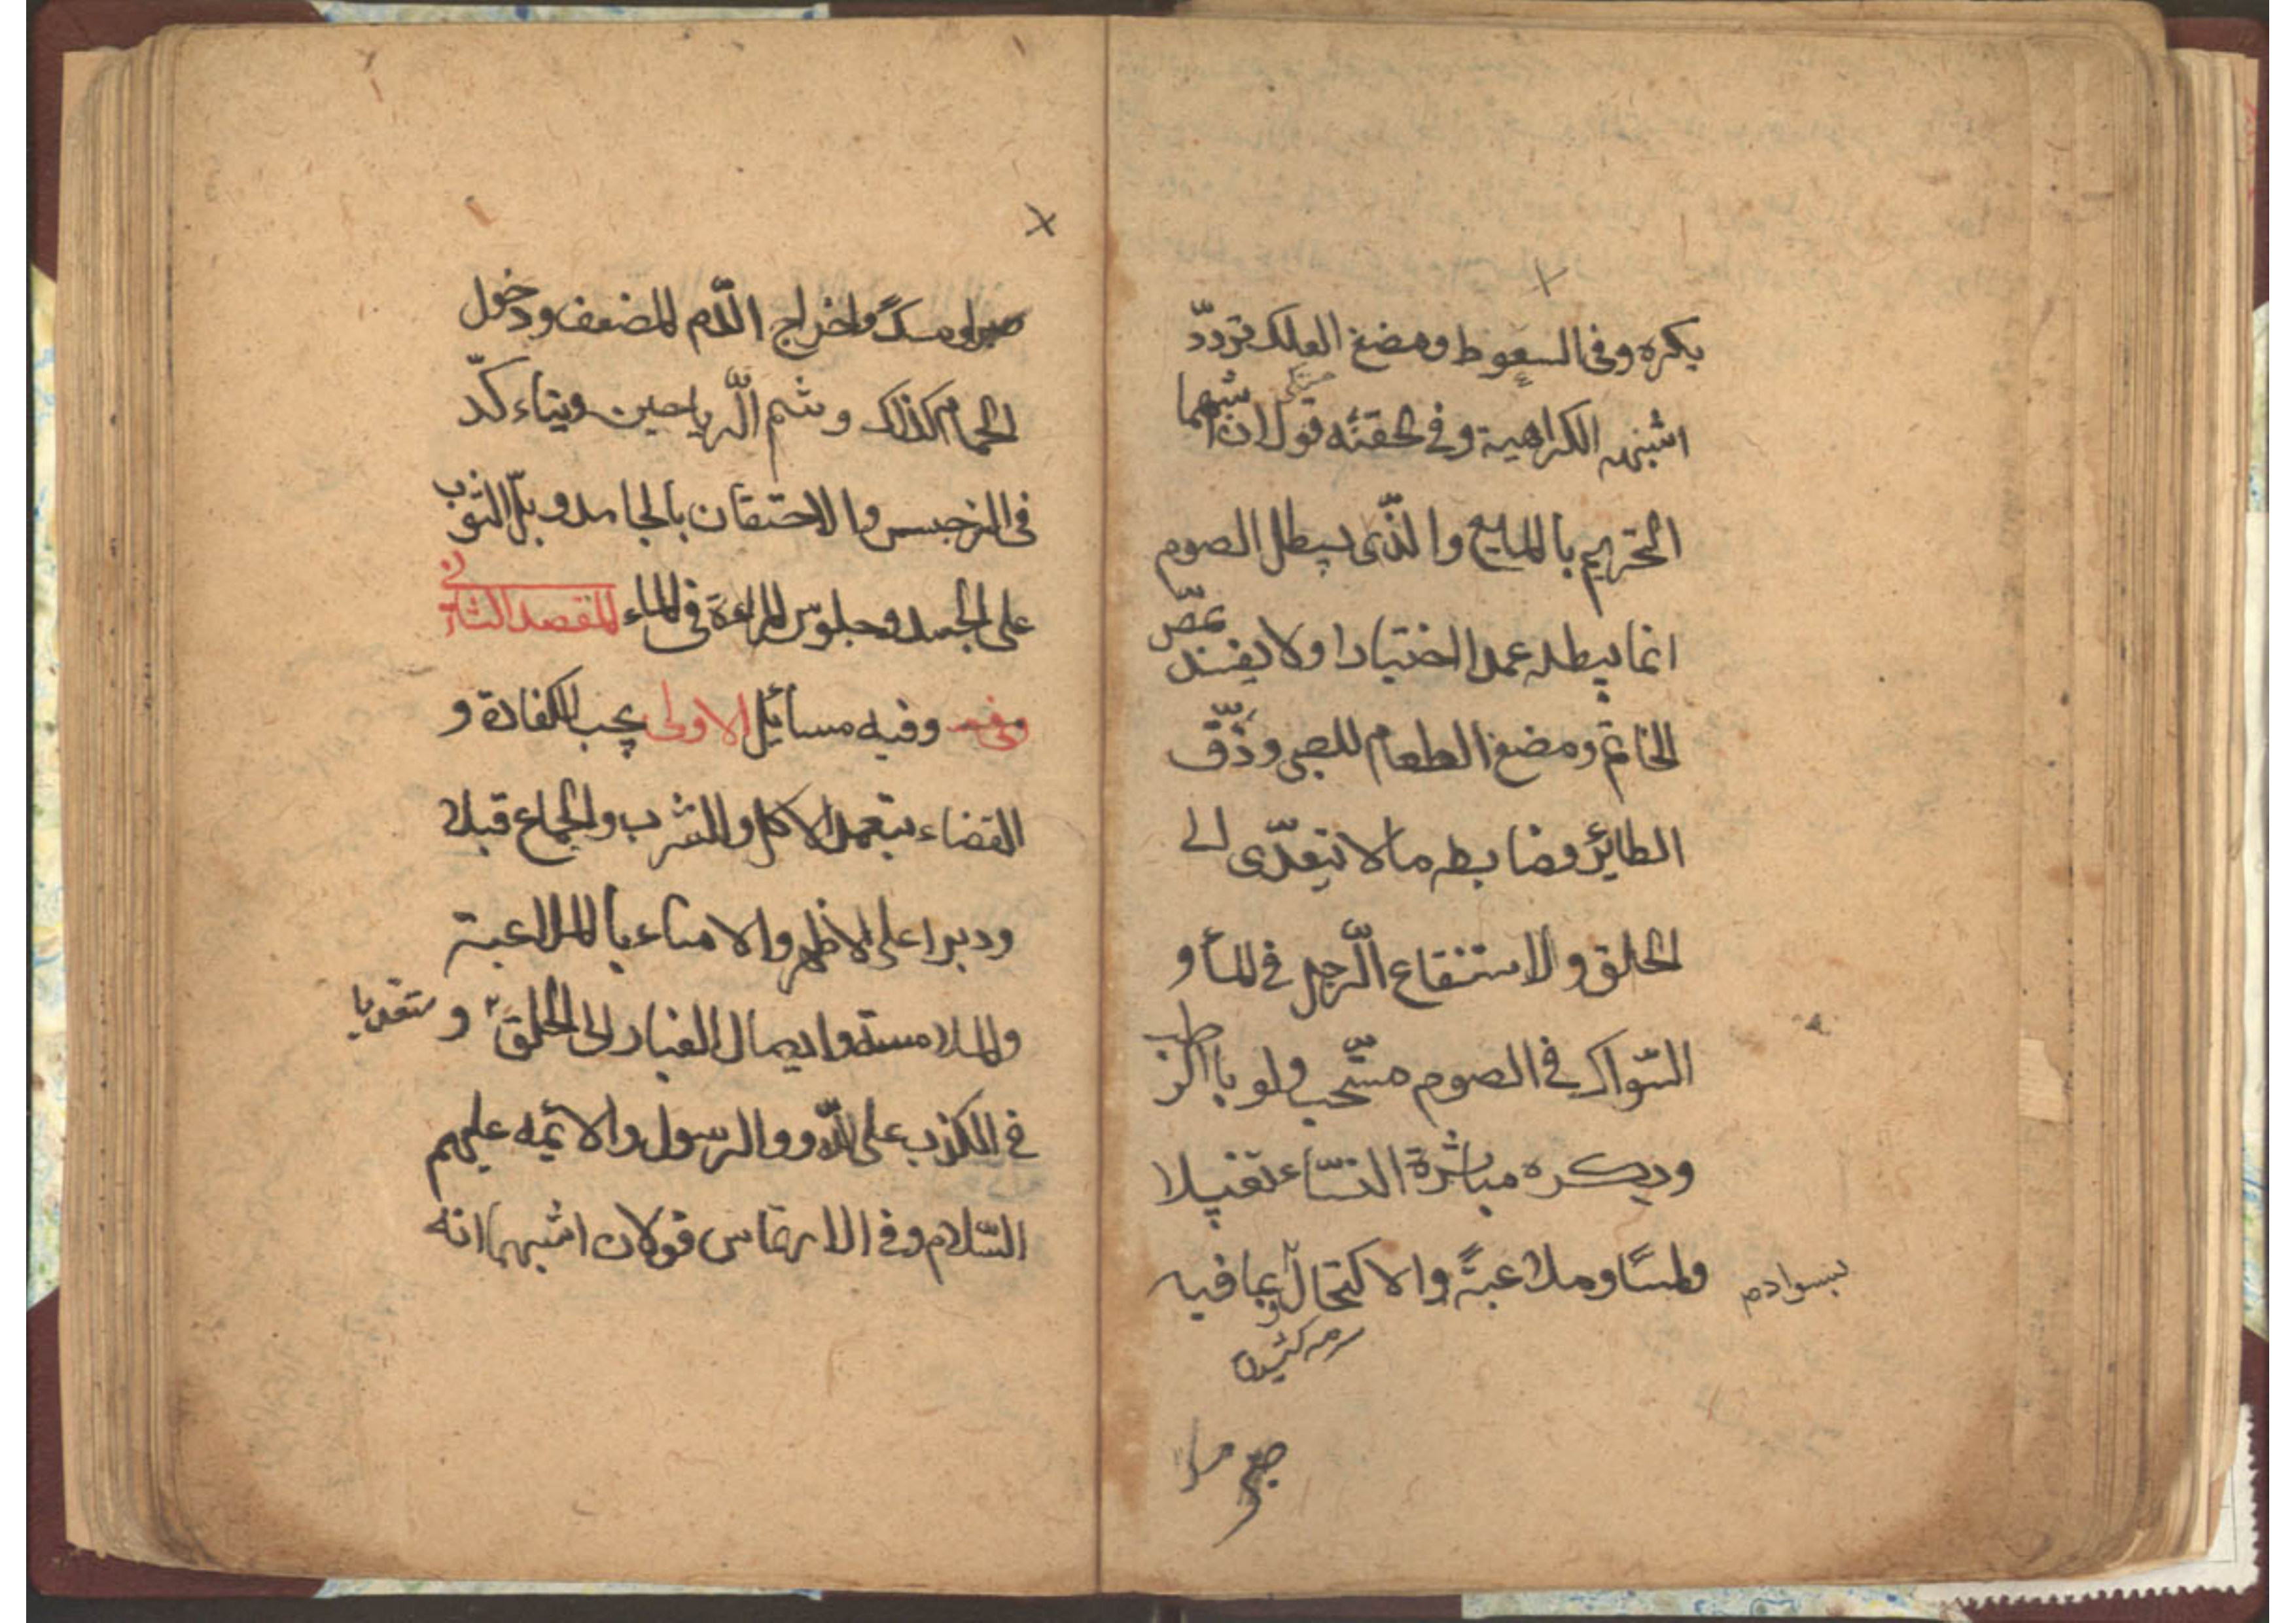 يكره وفى السعوط ومضغ العلك تردّد
اشبهه الكراهية وفي الحقنه قولان اشبههما
التحريم بالمايع والذّى يبطل الصوم
انما يبطله عمدا اختيارا ولا يفسد بمصّ
الخاتم ومضغ الطعام للصبى وذّق
الطاير وضابطه ما لا يتعدّى الى
الحلق والاستنقاع الّرجل في الماء و
السّواك في الصوم مستّحب ولو بالرطب
ويكره مباشرة النسّاء تقبيلا
ولمسًا وملاعبةً والاكتحال بما فيه
صبر او مسك واخراج الّدم المضعف ودخول
الحمام كذلك وشم الّرياحين ويتاءكّد
في النرجس والاحتقان بالجامد وبلّ الثوب
على الجسد وجلوس المراءة في الماء المقصد الثانى
وفيه مسائل الاولى يجب الكفارة و
القضاء بتعمد الاكل والشرب والجماع قبلا
ودبرا على الاظهر والامناء بالملاعبة
والملامسة وايصال الغبار الى الحلق متعديا و
في الكذب على الله و والرسول والائمه عليهم
السّلام وفي الارتماس قولان اشبهما انه